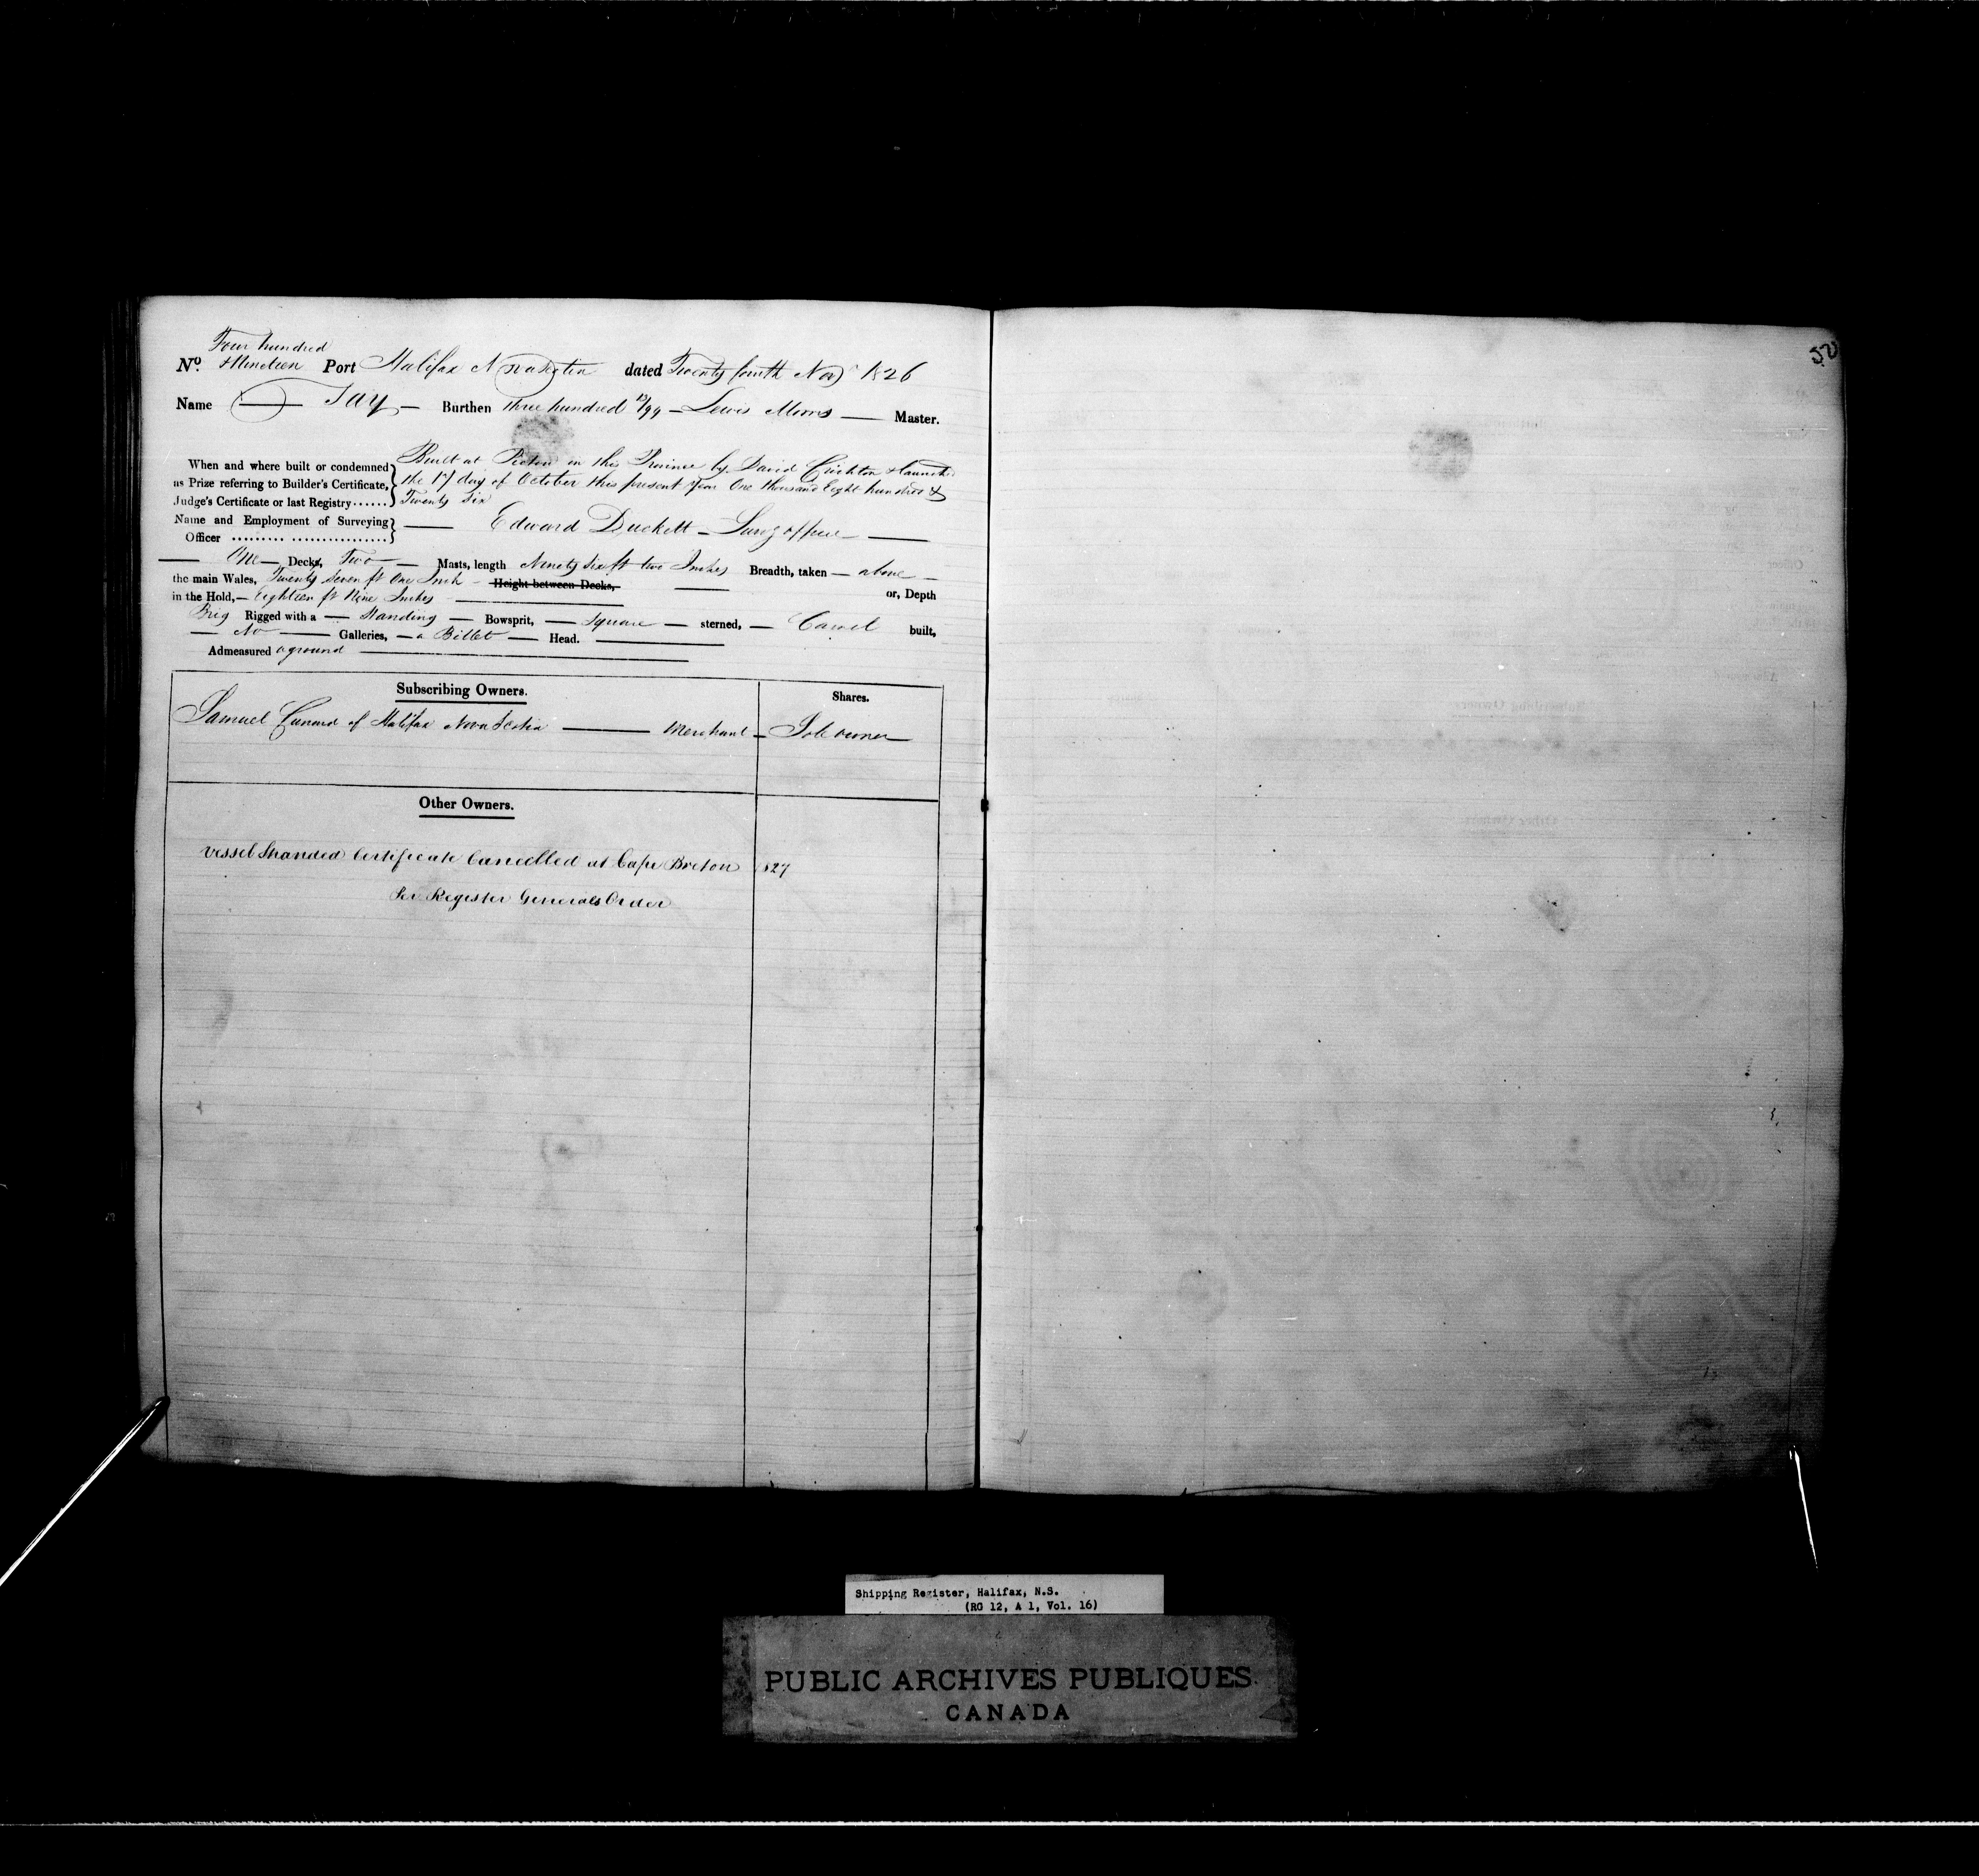 Four hundred
No. & Nineteen Port Halifax Nova Scotia dated Twenty fourth Nov 1826
Name Tay Burthen three hundred 13/94 Lewis Morris Master.
Built at Pictou in this Province by David Crichton & launched
When and where built or condemned
as Prize referring to Builder's Certificate, the 17 day of October this present Year One thousand Eight hundred &
Judge's Certificate or last Registry...... Twenty Six
Name and Employment of Surveying Edward Duckett Surv'g officer
Officer ......... ................
One Decks, Two Masts, length Ninety six ft two Inches Breadth, taken above
the main Wales, Twenty seven ft One Inch Height between Decks,
in the Hold, Eighteen ft Nine Inches or, Depth
Brig Rigged with a Standing Bowsprit, Square sterned, Carvel built,
No Galleries, a Billet Head.
Admeasured aground
Subscribing Owners. Shares.
Samuel Cunard of Halifax Nova Scotia Merchant Sole owner
Other Owners.
Vessel Stranded Certificate Cancelled at Cape Breton 1827
Per Register Generals Order
Shipping Register, Halifax, N.S.
(RG 12, A 1, Vol. 16)
PUBLIC ARCHIVES PUBLIQUES
CANADA